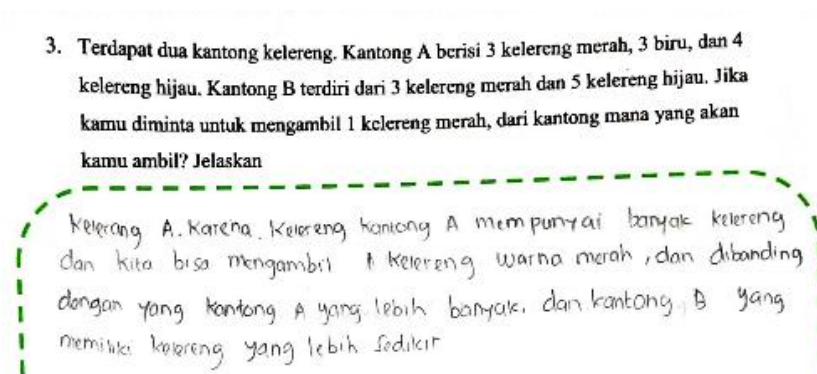 3. Terdapat dua kantong kelereng. Kantong A berisi 3 kelereng merah, 3 biru, dan 4
kelereng hijau. Kantong B terdiri dari 3 kelereng merah dan 5 kelereng hijau. Jika
kamu diminta untuk mengambil 1 kelereng merah, dari kantong mana yang akan
kamu ambil? Jelaskan
Kelerang A. Karena. Kelereng kantong A mempunyai banyak kelereng
dan kita bisa mengambil 1 kelereng warna merah, dan dibanding
dengan yang kantong A yang lebih banyak. dan kantong B yang
memiliki kelereng yang lebih sedikit